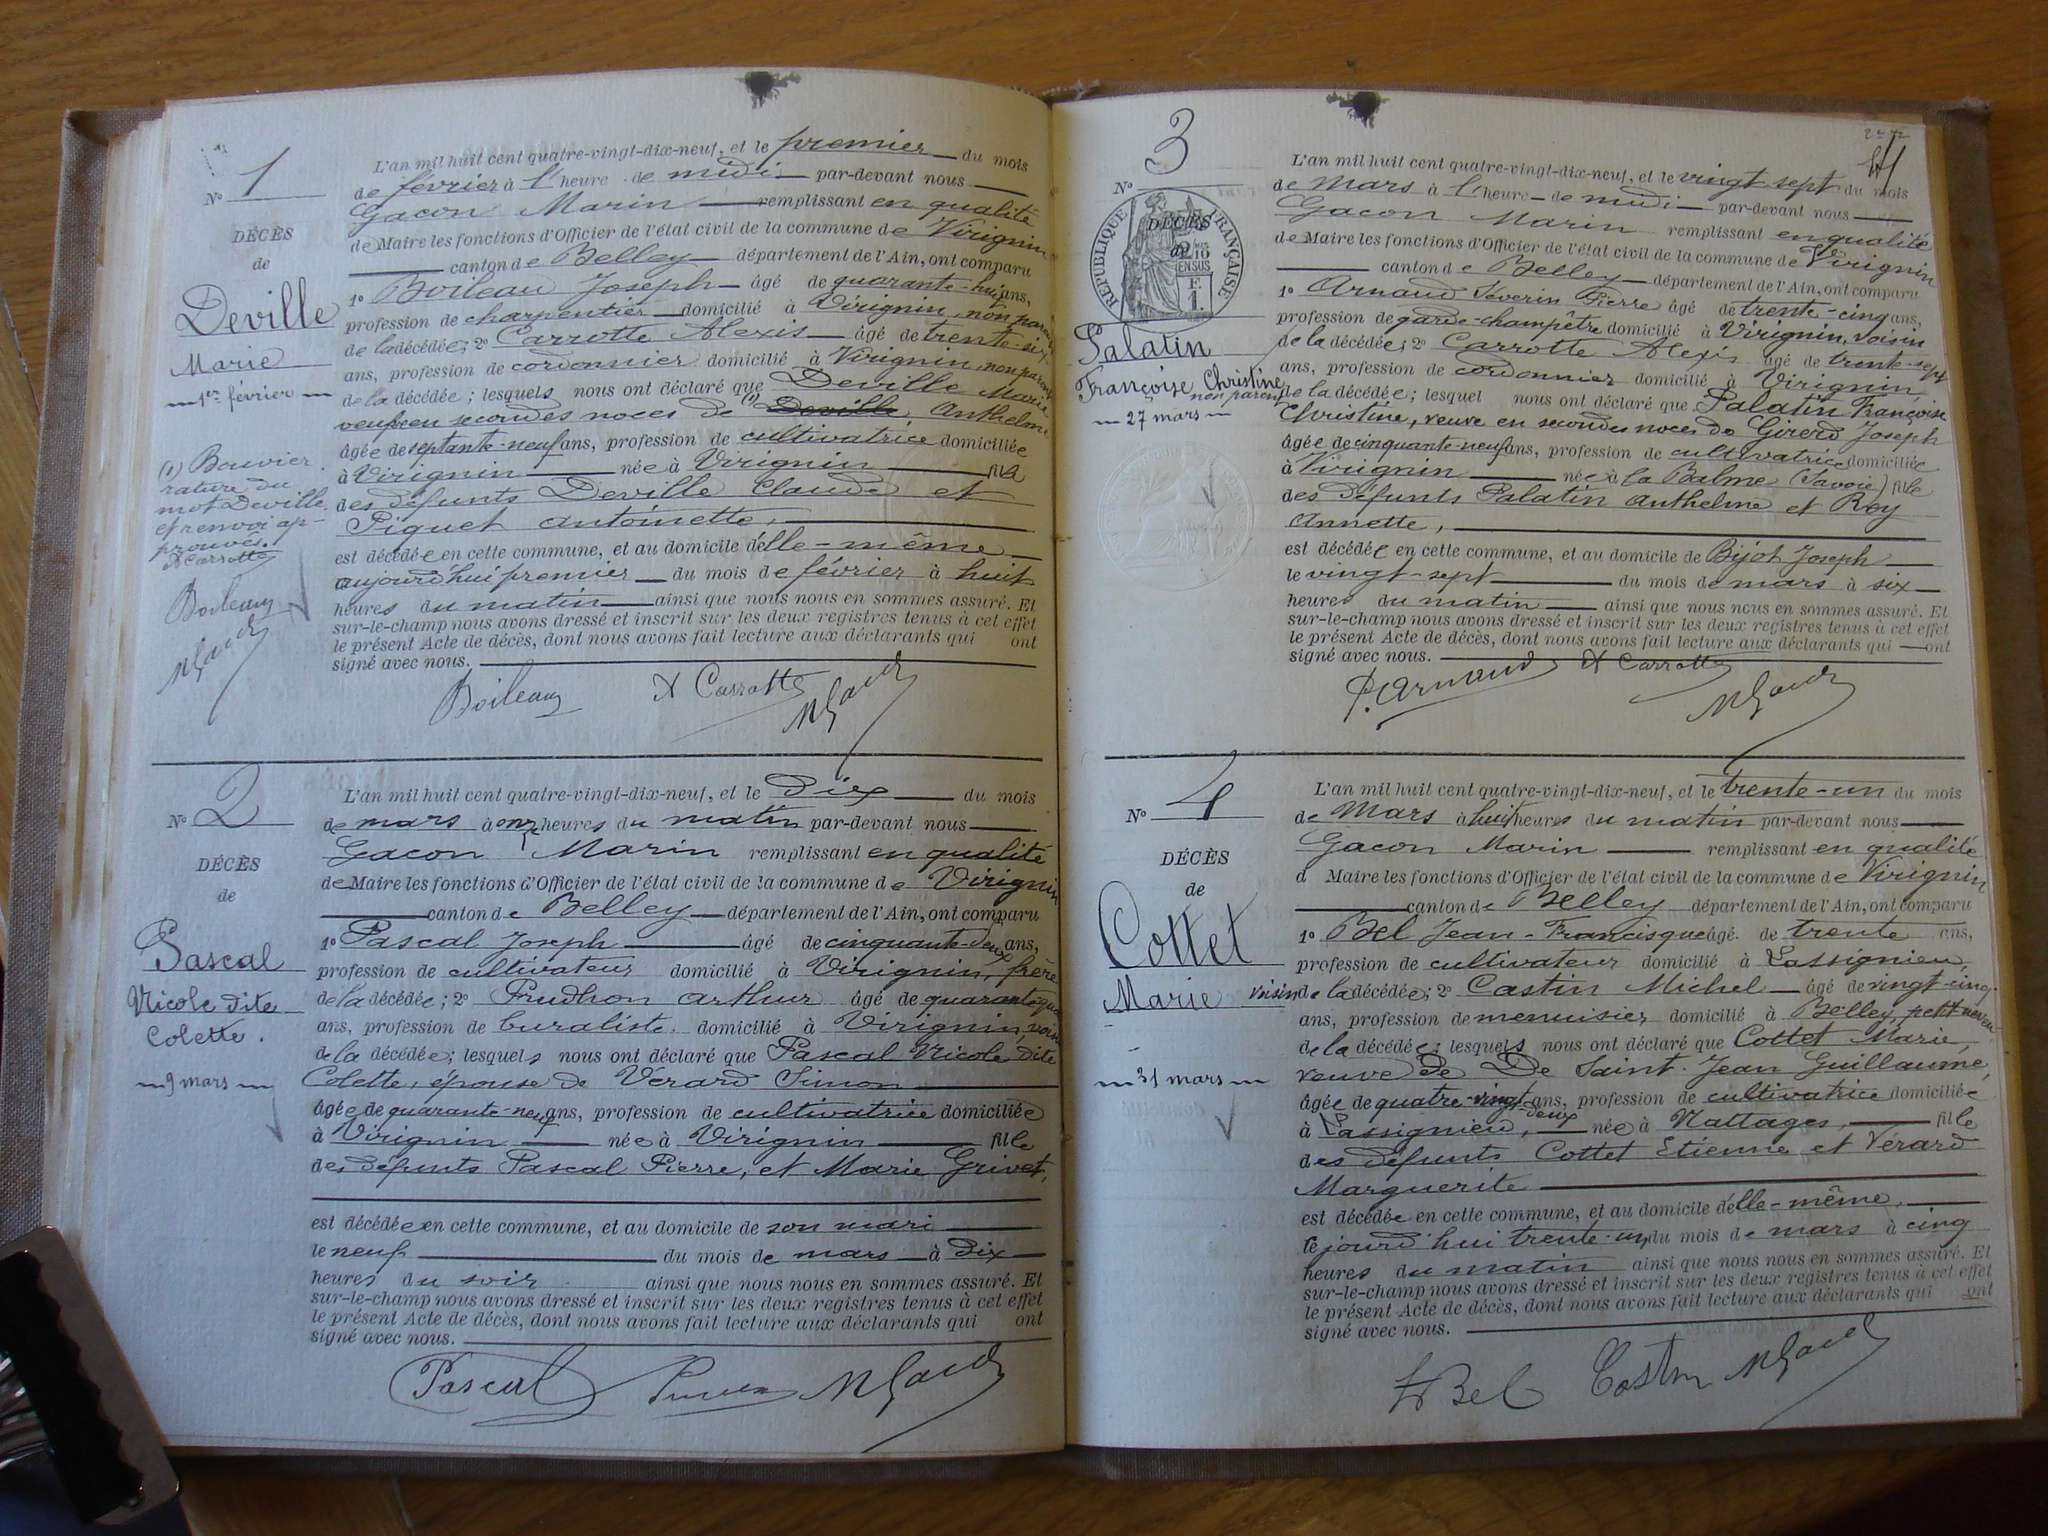 N° 1
DÉCÈS
de
Deville
Marie
1er février
(1) Bouvier.
rature du
mot Deville
et renvoi ap-
prouvés.
A Carrotte
Boileau
L'an mil huit cent quatre-vingt-dix-neuf, et le premier du mois
de février à l'heure de midi par-devant nous
Gacon Marin remplissant en qualité
de Maire les fonctions d'Officier de l'état civil de la commune de Virignin
canton de Belley département de l'Ain, ont comparu
1° Boileau Joseph âgé de quarante-huit ans,
profession de charpentier domicilié à Virignin, non parent
de la décédée; 2° Carrotte Alexis âgé de trente-six
ans, profession de cordonnier domicilié à Virignin, non parent
de la décédée; lesquels nous ont déclaré que Deville Marie
veuve en secondes noces de (1) Deville Anthelme
âgée de septante-neuf ans, profession de cultivatrice domiciliée
à Virignin née à Virignin fille
des défunts Deville Claude et
Piquet Antoinette,
est décédée en cette commune, et au domicile d'elle-même
aujourd'hui premier du mois de février à huit
heures du matin ainsi que nous nous en sommes assuré. Et
sur-le-champ nous avons dressé et inscrit sur les deux registres tenus à cet effet
le présent Acte de décès, dont nous avons fait lecture aux déclarants qui ont
signé avec nous.
Boileau A Carrotte
N° 2
DÉCÈS
de
Pascal
Nicole dite
Colette.
9 mars
L'an mil huit cent quatre-vingt-dix-neuf, et le dix du mois
de mars à onze heures du matin par-devant nous
Gacon Marin remplissant en qualité
de Maire les fonctions d'Officier de l'état civil de la commune de Virignin
canton de Belley département de l'Ain, ont comparu
1° Pascal Joseph âgé de cinquante-deux ans,
profession de cultivateur domicilié à Virignin, frère
de la décédée; 2° Prudhon Arthur âgé de
ans, profession de buraliste domicilié à Virignin, voisin
de la décédée; lesquels nous ont déclaré que Pascal Nicole dite
Colette, épouse de Vérard Simon
âgée de quarante-neuf ans, profession de cultivatrice domiciliée
à Virignin née à Virignin fille
des défunts Pascal Pierre, et Marie Grivet,
est décédée en cette commune, et au domicile de son mari
le neuf du mois de mars à dix
heures du soir ainsi que nous nous en sommes assuré. Et
sur-le-champ nous avons dressé et inscrit sur les deux registres tenus à cet effet
le présent Acte de décès, dont nous avons fait lecture aux déclarants qui ont
signé avec nous.
Pascal
3
N°
DÉCÈS
de
RÉPUBLIQUE FRANÇAISE
2/10 EN SUS
F. 1.
Palatin
Françoise Christine
non parent
27 mars
L'an mil huit cent quatre-vingt-dix-neuf, et le vingt sept du mois
de Mars à l'heure de midi par-devant nous
Gacon Marin remplissant en qualité
de Maire les fonctions d'Officier de l'état civil de la commune de Virignin
canton de Belley département de l'Ain, ont comparu
1° Arnaud Séverin Pierre âgé de trente-cinq ans,
profession de garde-champêtre domicilié à Virignin, voisin
de la décédée; 2° Carrotte Alexis âgé de trente-sept
ans, profession de cordonnier domicilié à Virignin,
de la décédée; lesquel nous ont déclaré que Palatin Françoise
Christine, veuve en secondes noces de Girerd Joseph
âgée de cinquante-neuf ans, profession de cultivatrice domiciliée
à Virignin née à la Balme (Savoie) fille
des défunts Palatin Anthelme et Rey
Annette,
est décédée en cette commune, et au domicile de Bijot Joseph
le vingt-sept du mois de mars à six
heures du matin ainsi que nous nous en sommes assuré. Et
sur-le-champ nous avons dressé et inscrit sur les deux registres tenus à cet effet
le présent Acte de décès, dont nous avons fait lecture aux déclarants qui ont
signé avec nous.
P. Arnaud A Carrotte
N° 4
DÉCÈS
de
Cottet
Marie
31 mars
L'an mil huit cent quatre-vingt-dix-neuf, et le trente-un du mois
de Mars à huit heures du matin par-devant nous
Gacon Marin remplissant en qualité
d Maire les fonctions d'Officier de l'état civil de la commune de Virignin
canton de Belley département de l'Ain, ont comparu
1° Bel Jean-Francisque âgé de trente ans,
profession de cultivateur domicilié à Lassignieu,
voisin de la décédée; 2° Castin Michel âgé de vingt-cinq
ans, profession de menuisier domicilié à Belley, petit neveu
de la décédée; lesquels nous ont déclaré que Cottet Marie,
veuve de De Saint-Jean Guillaume,
âgée de quatre-vingt-deux ans, profession de cultivatrice domiciliée
à Lassignieu, née à Nattages, fille
des défunts Cottet Etienne et Vérard
Marguerite
est décédée en cette commune, et au domicile d'elle-même,
le jourd'hui trente-un du mois de mars à cinq
heures du matin ainsi que nous nous en sommes assuré. Et
sur-le-champ nous avons dressé et inscrit sur les deux registres tenus à cet effet
le présent Acte de décès, dont nous avons fait lecture aux déclarants qui ont
signé avec nous.
Bel Castin